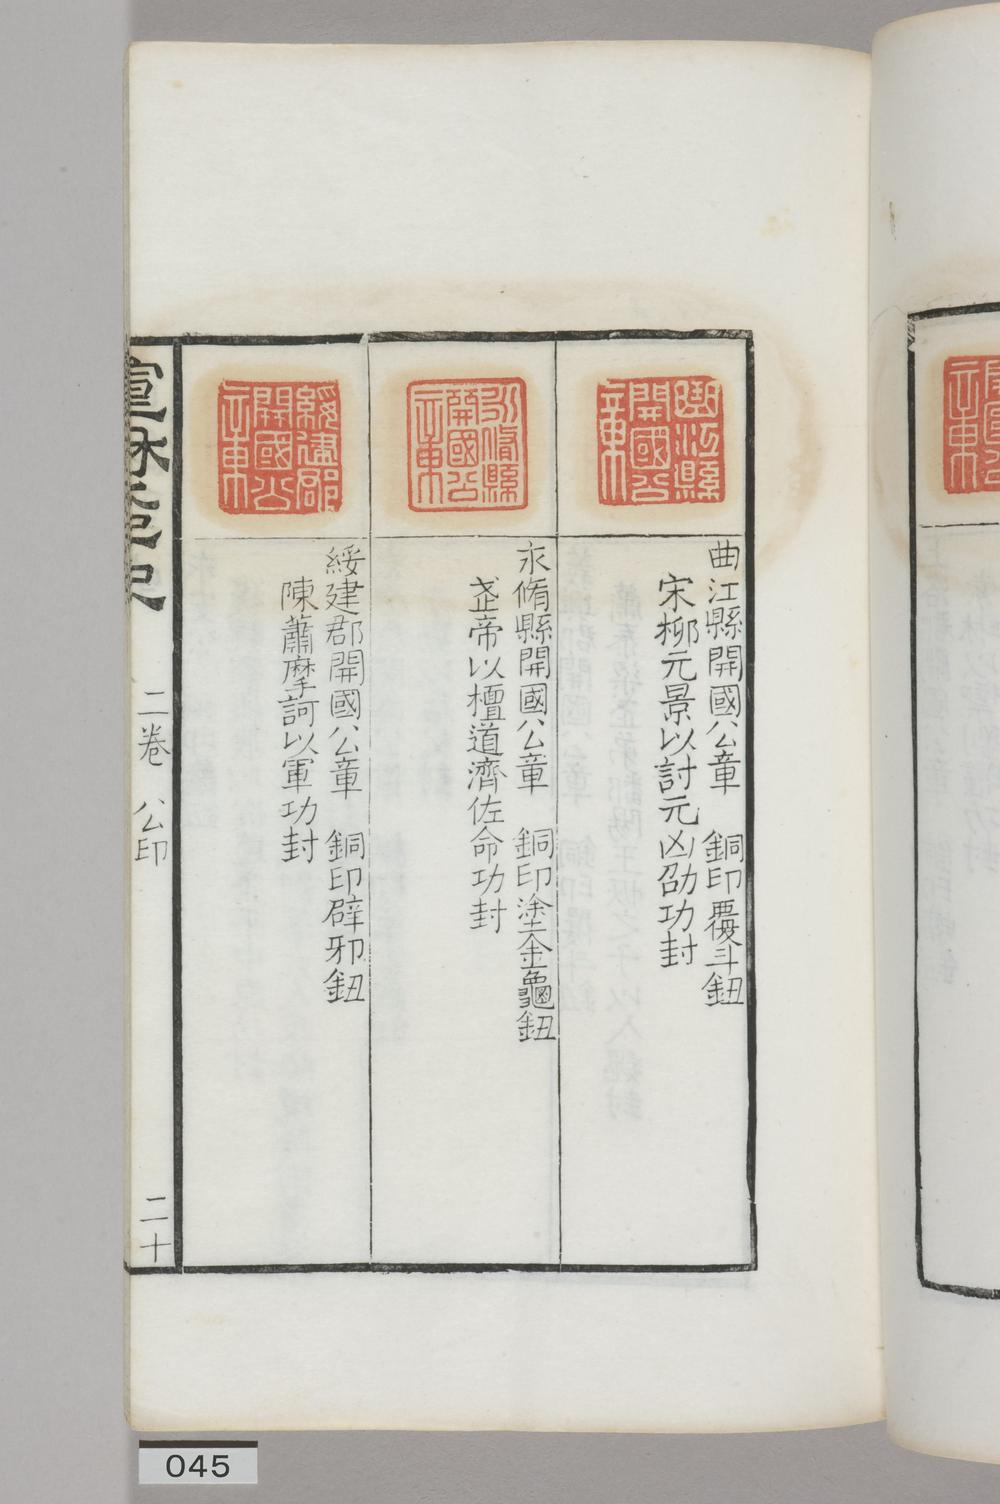 曲江縣開國公章　銅印覆斗鈕
宋柳元景以討元凶劭功封
永脩縣開國公章　銅印塗金龜鈕
武帝以檀道濟佐命功封
綏建郡開國公章　銅印辟邪鈕
陳蕭摩訶以軍功封
宣和印史
二卷　公印
二十
045